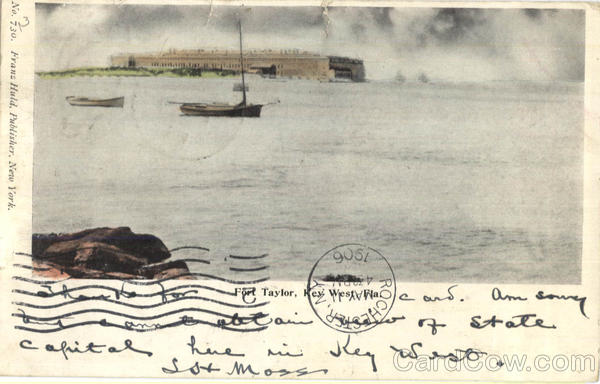 No. 730. Franz Huld, Publisher, New York.
Fort Taylor, Key West, Fla.
Thanks for card. Am sorry
but cannot obtain view of State
capital here in Key West.
L H Moss
ROCHESTER
N.Y.
MAY
4
1906
CardCow.com